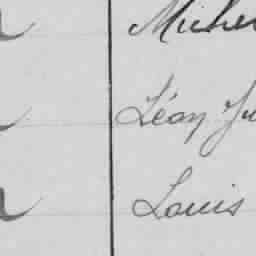 Michel
Léon Ju
Louis